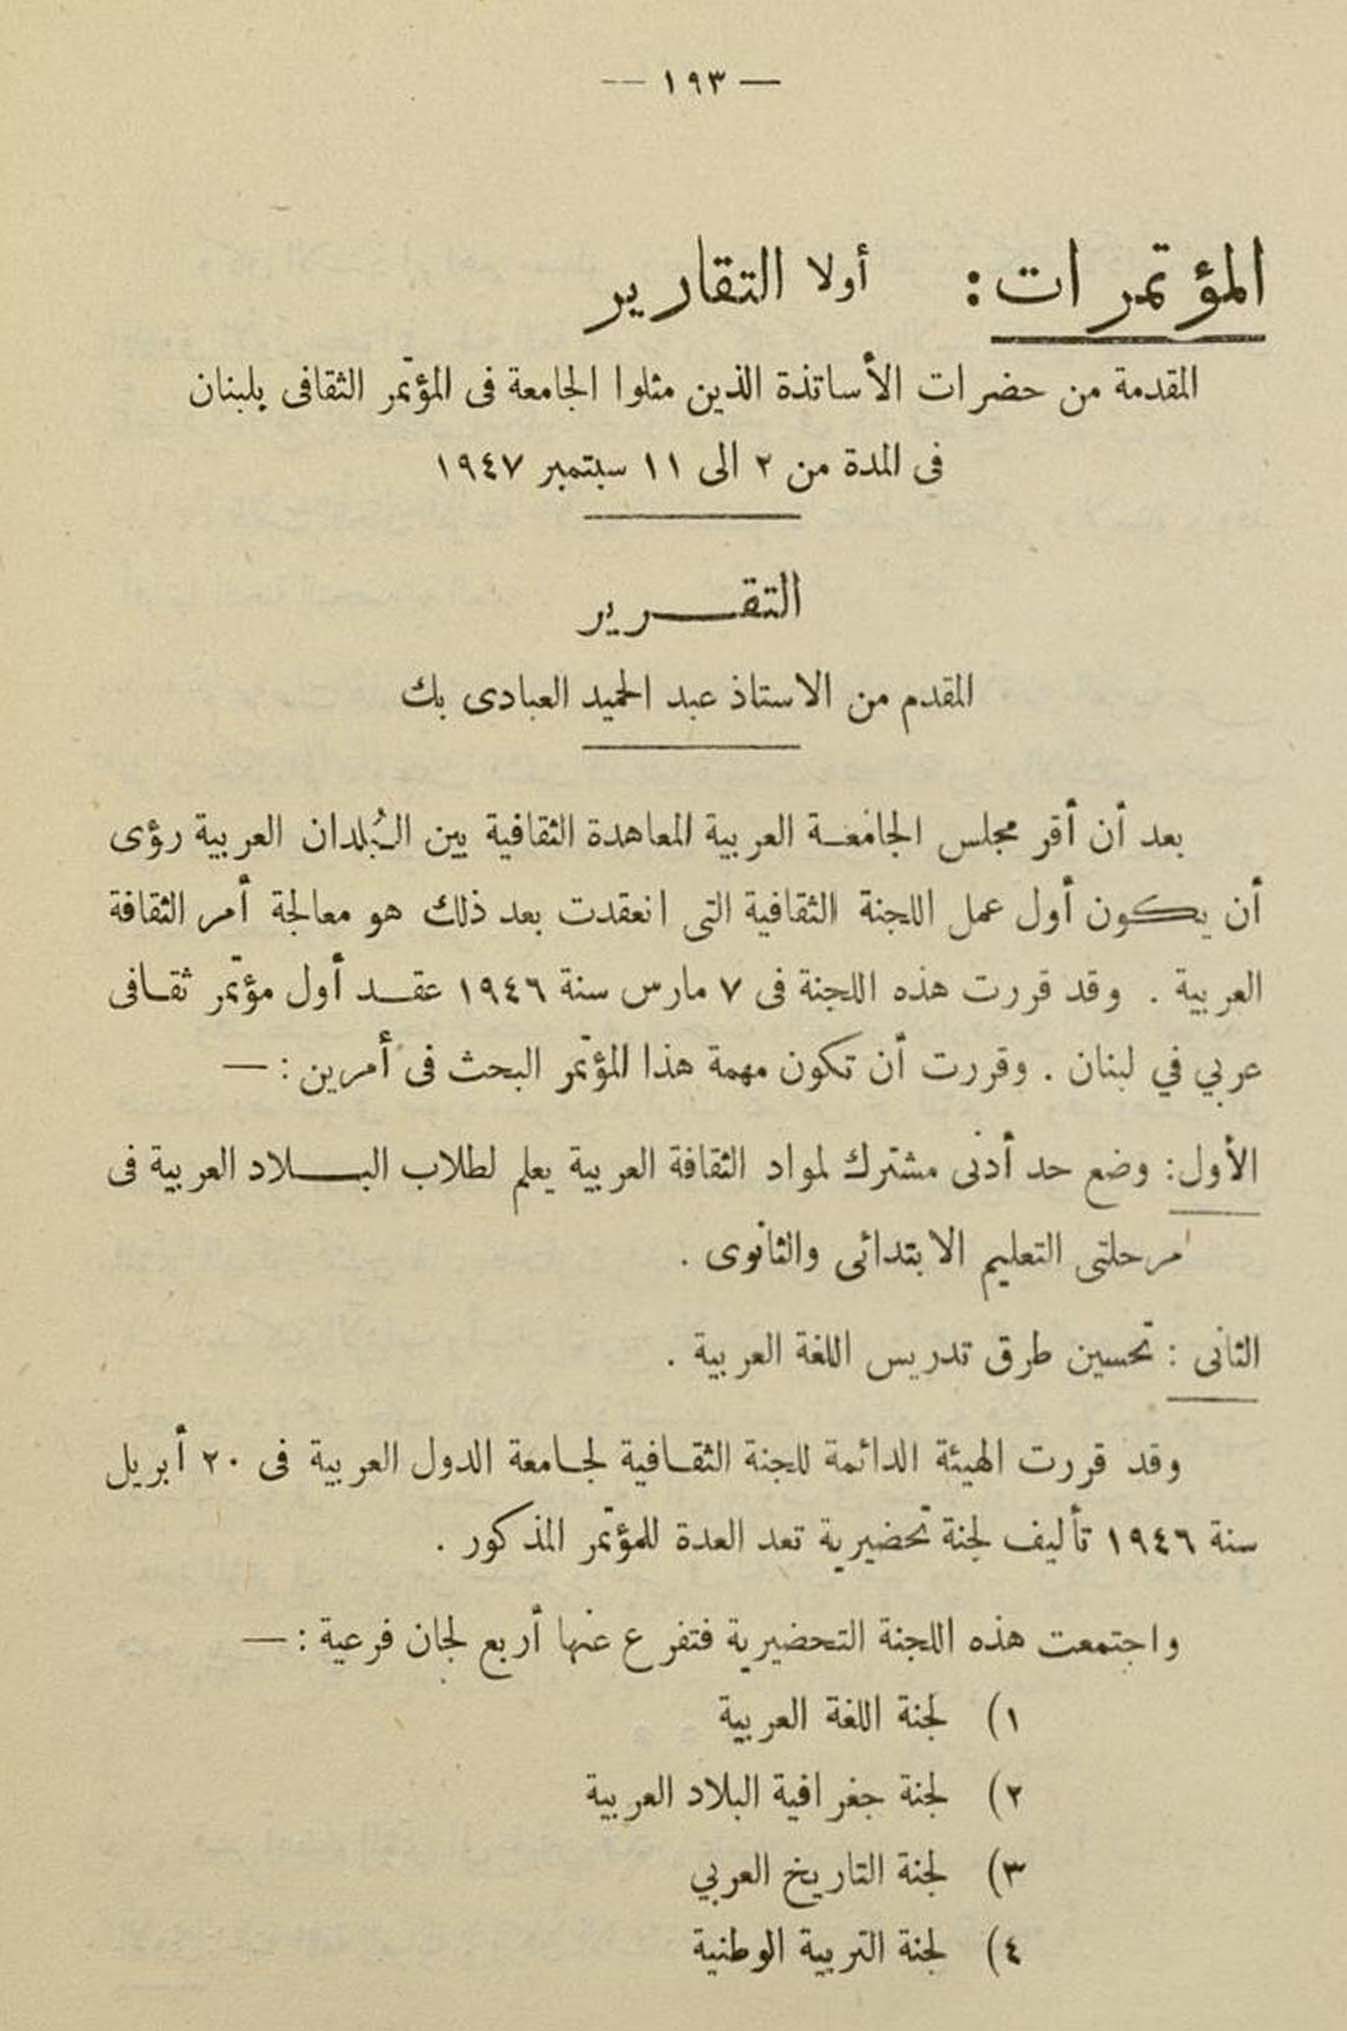 — ١٩٣ —
المؤتمرات : أولا التقارير
المقدمة من حضرات الأساتذة الذين مثلوا الجامعة فى المؤتمر الثقافى بلبنان
فى المدة من ٢ الى ١١ سبتمبر ١٩٤٧
التقـــرير
المقدم من الاستاذ عبد الحميد العبادى بك
بعد أن أقر مجلس الجامعة العربية المعاهدة الثقافية بين البُلدان العربية رؤى
أن يكون أول عمل اللجنة الثقافية التى انعقدت بعد ذلك هو معالجة أمر الثقافة
العربية . وقد قررت هذه اللجنة فى ٧ مارس سنة ١٩٤٦ عقد أول مؤتمر ثقافى
عربي في لبنان . وقررت أن تكون مهمة هذا المؤتمر البحث فى أمرين : —
الأول : وضع حد أدنى مشترك لمواد الثقافة العربية يعلم لطلاب البلاد العربية فى
مرحلتى التعليم الابتدائى والثانوى .
الثانى : تحسين طرق تدريس اللغة العربية .
وقد قررت الهيئة الدائمة للجنة الثقافية لجامعة الدول العربية فى ٢٠ أبريل
سنة ١٩٤٦ تأليف لجنة تحضيرية تعد العدة للمؤتمر المذكور .
واجتمعت هذه اللجنة التحضيرية فتفرع عنها أربع لجان فرعية : —
١) لجنة اللغة العربية
٢) لجنة جغرافية البلاد العربية
٣) لجنة التاريخ العربي
٤) لجنة التربية الوطنية